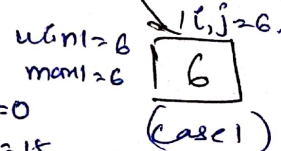 i, j = 6.
min1 = 6
max1 = 6
6
= 0
(Case 1)
= 15